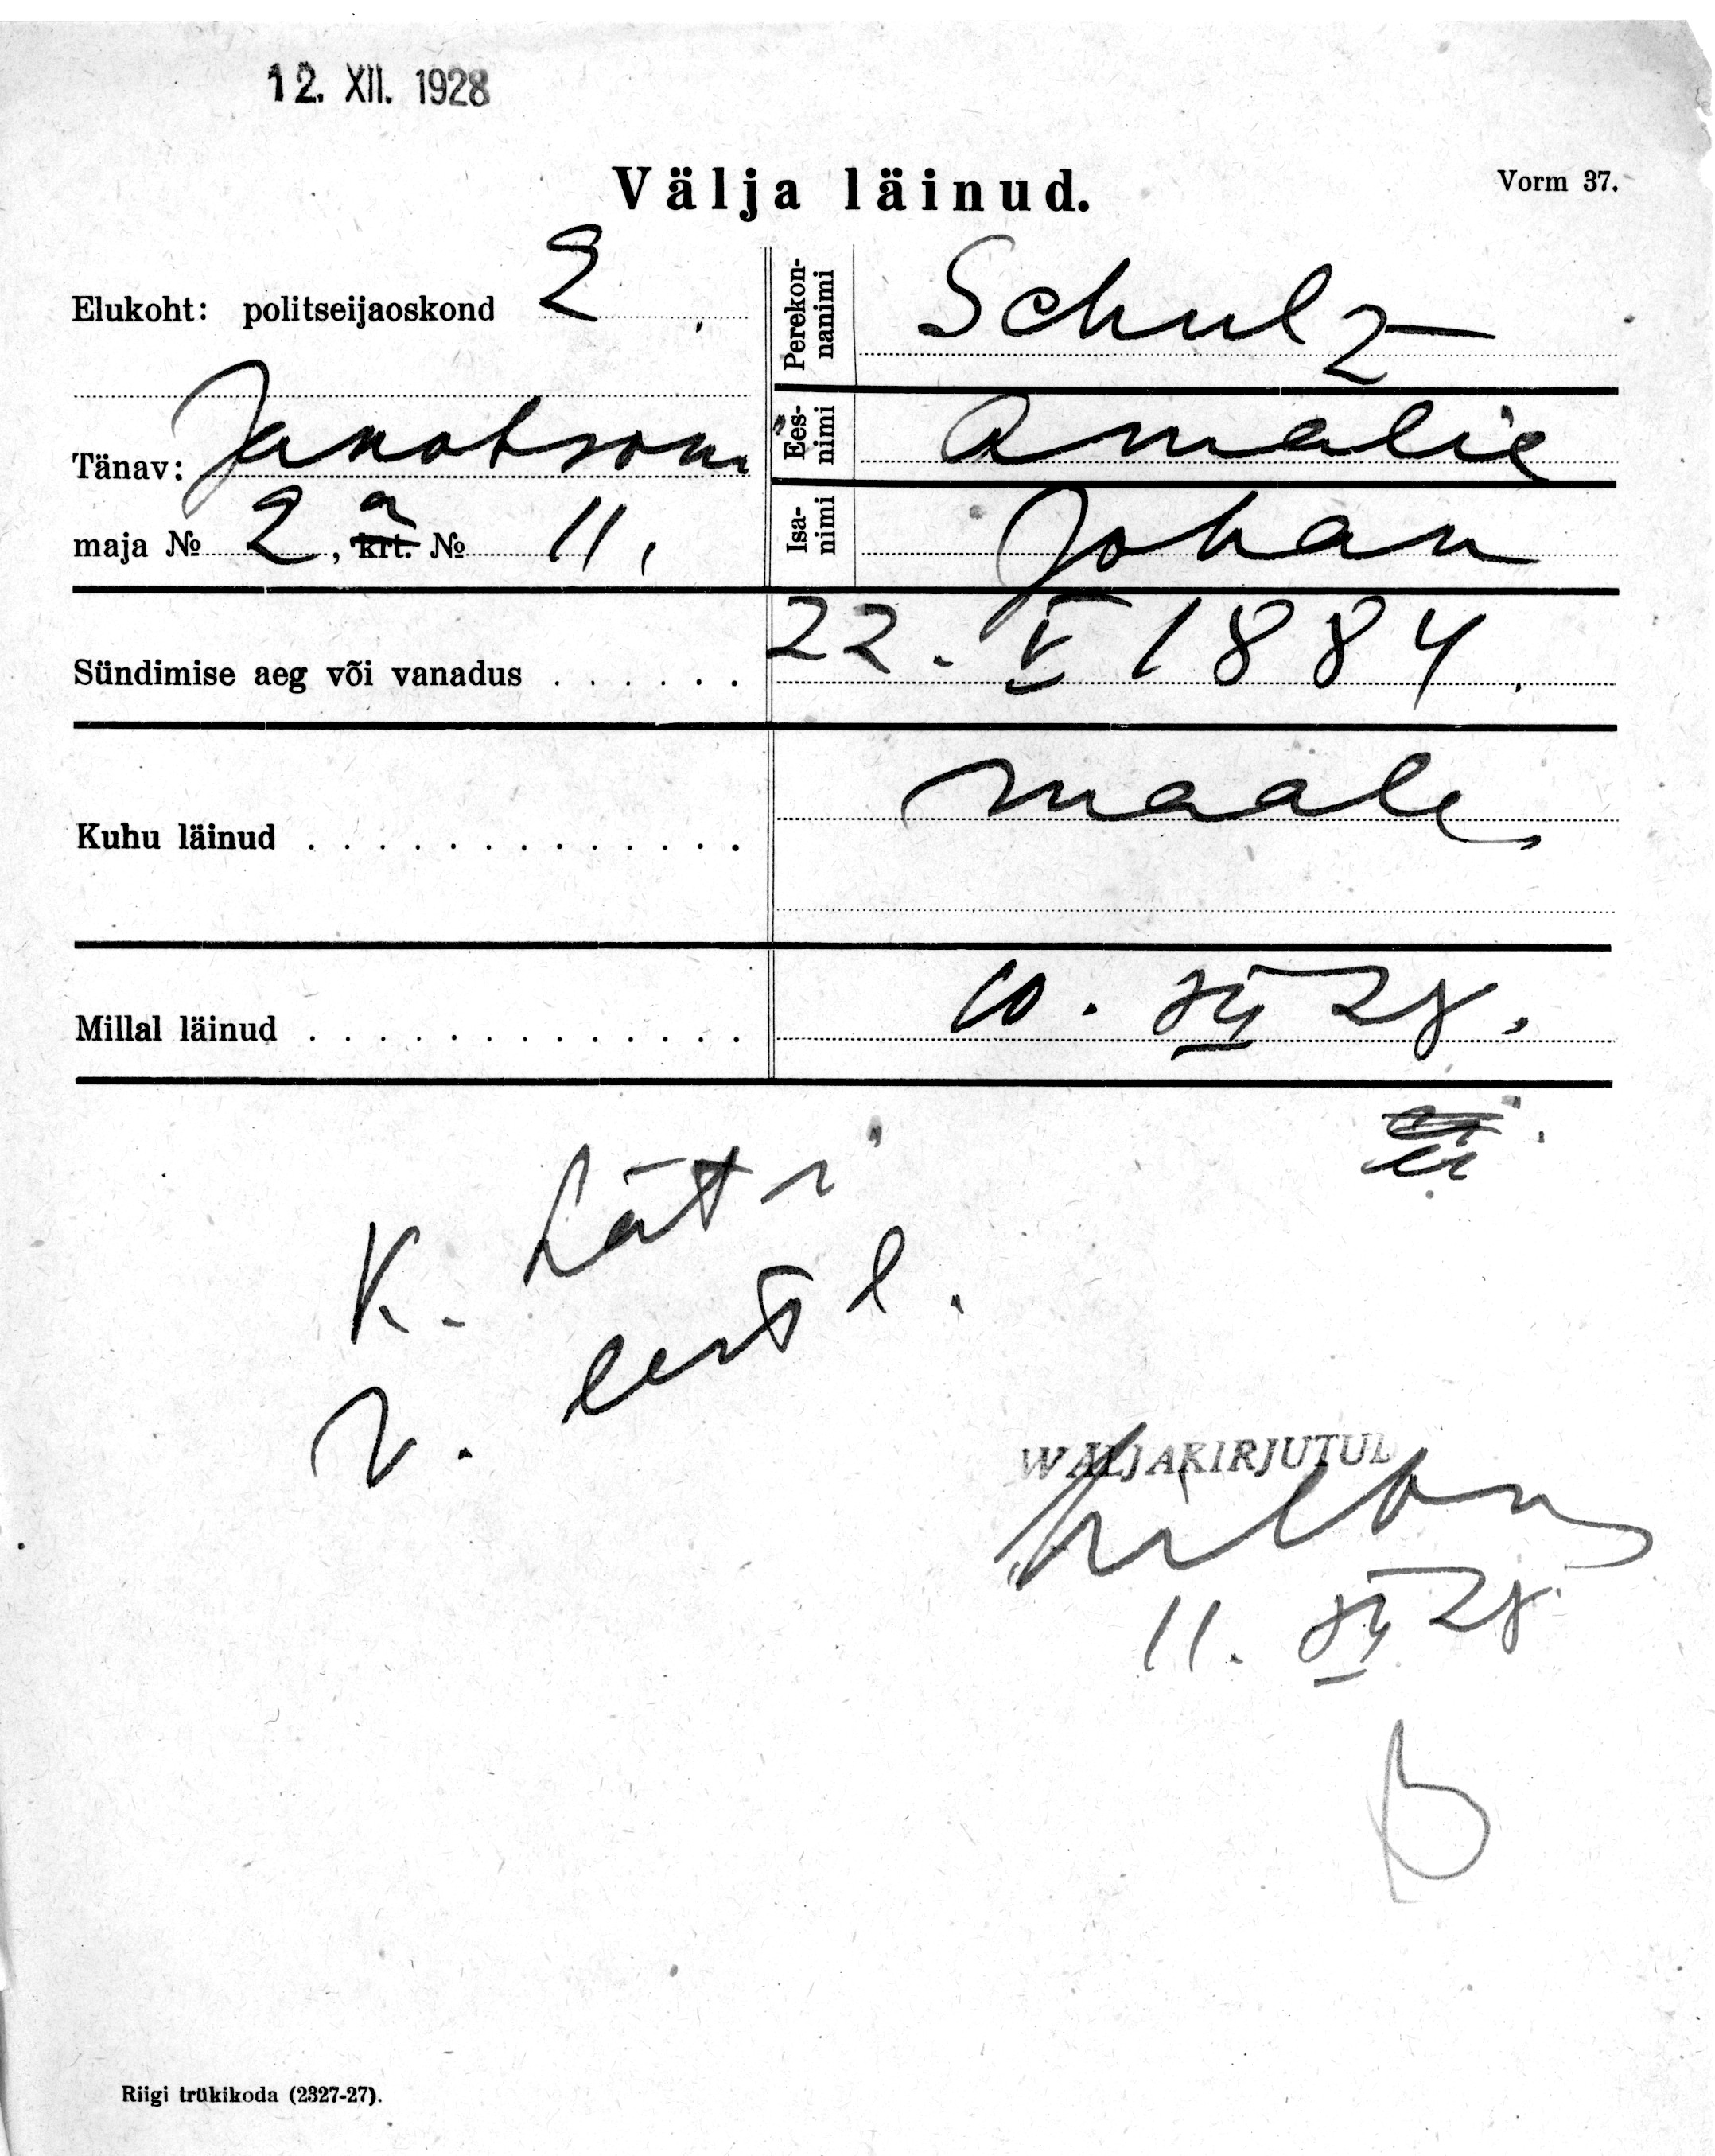 12. XII. 1928
Välja läinud.
Vorm 37.
Elukoht: politseijaoskond 2
Tänav: Jakobsoni
maja № 2, a krt. № 11,
Perekonnanimi Schulz
Ees-nimi Amalie
Isa-nimi Johan
Sündimise aeg või vanadus . . . . . . 22. V 1884.
Kuhu läinud . . . . . . . . . . . . . maale
Millal läinud . . . . . . . . . . . . . 10. XII 28.
K. Läti
r. eestl.
WÄLJAKIRJUTUD
11. XII 28.
Riigi trükikoda (2327-27).